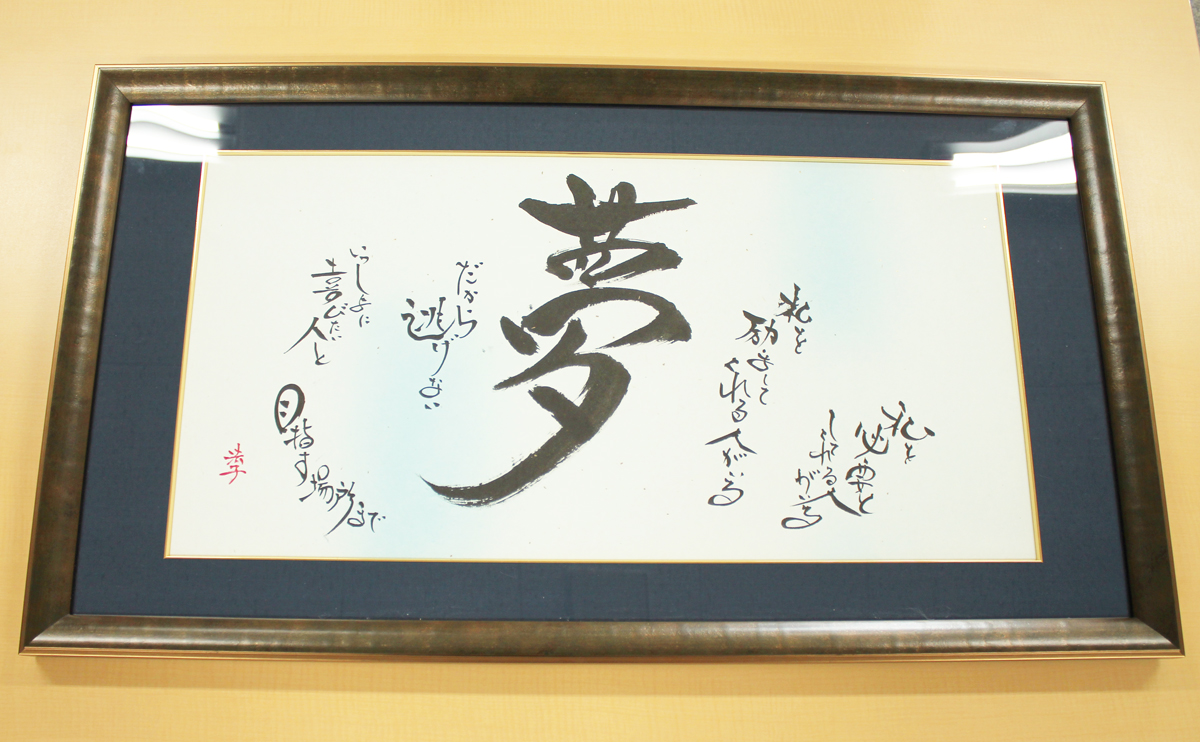 私を
必要と
してくれる人
がいる
私を
励まして
くれる人がいる
夢
だから
逃げない
いっしょに
喜びたい
人と
目指す場所まで